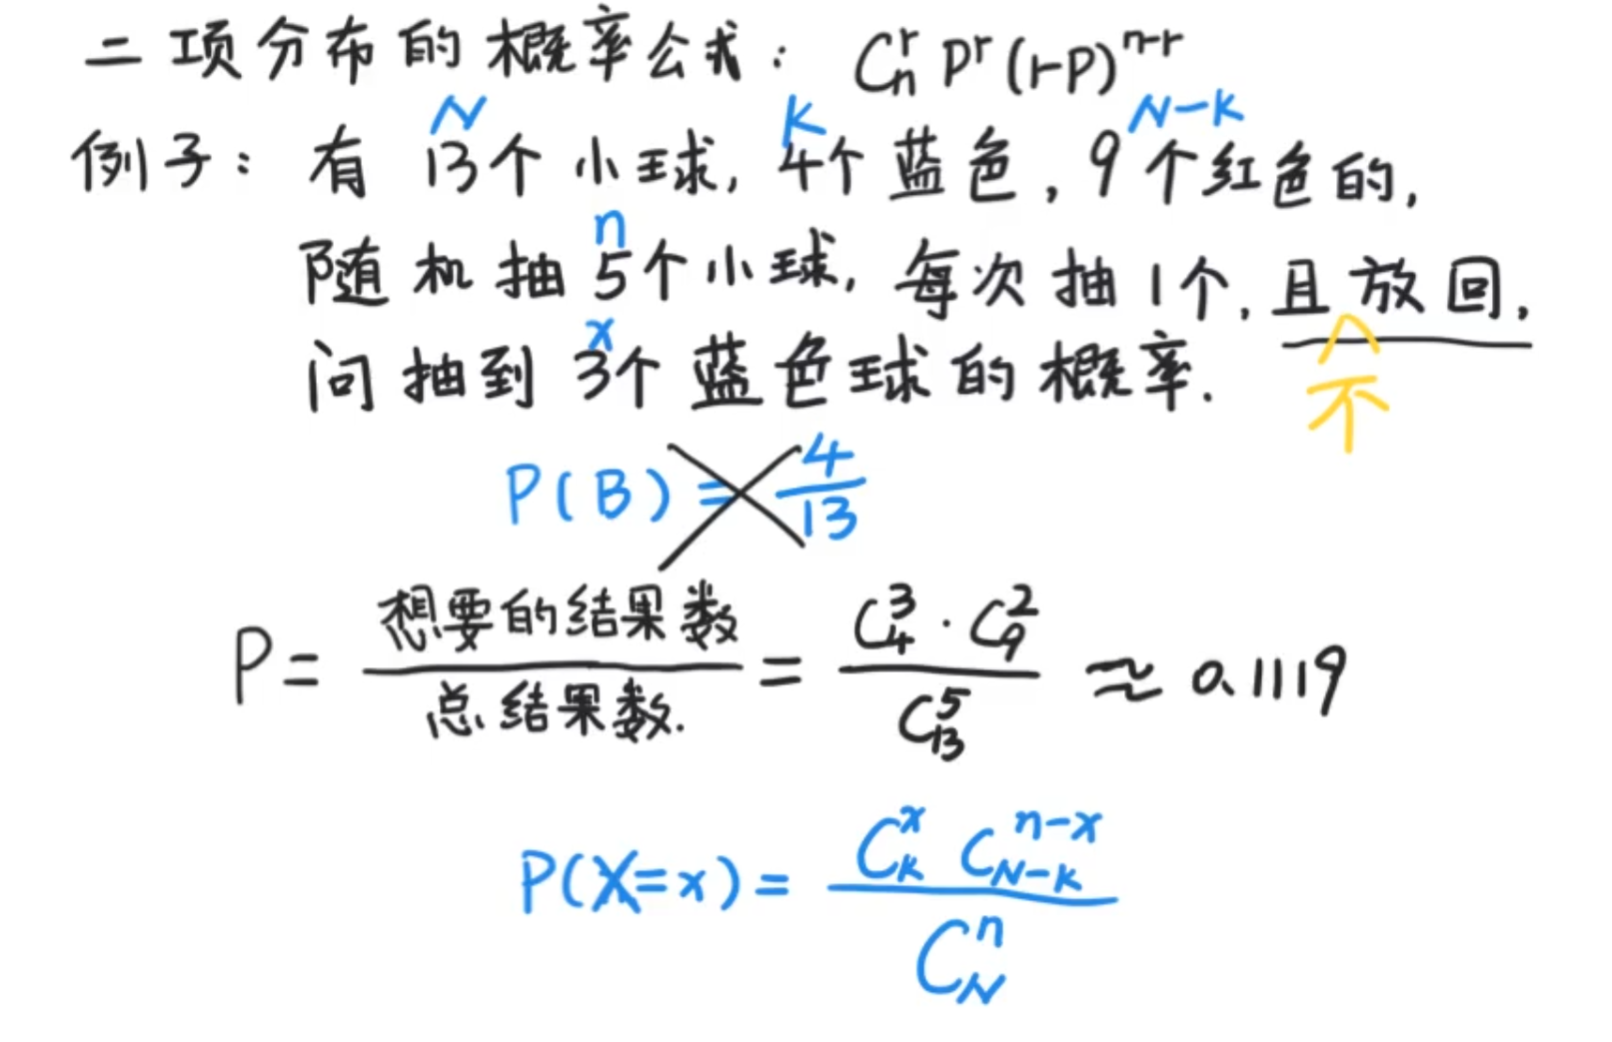 二项分布的概率公式: C_n^r P^r (1-P)^{n-r}
N K N-K
例子: 有 13个小球, 4个蓝色, 9个红色的,
n
随机抽5个小球, 每次抽1个, 且放回,
x ∧
问抽到3个蓝色球的概率. 不
P(B) = 4/13
P = 想要的结果数/总结果数. = C_4^3 · C_9^2 / C_13^5 ≈ 0.1119
P(X=x) = C_K^x C_{N-K}^{n-x} / C_N^n